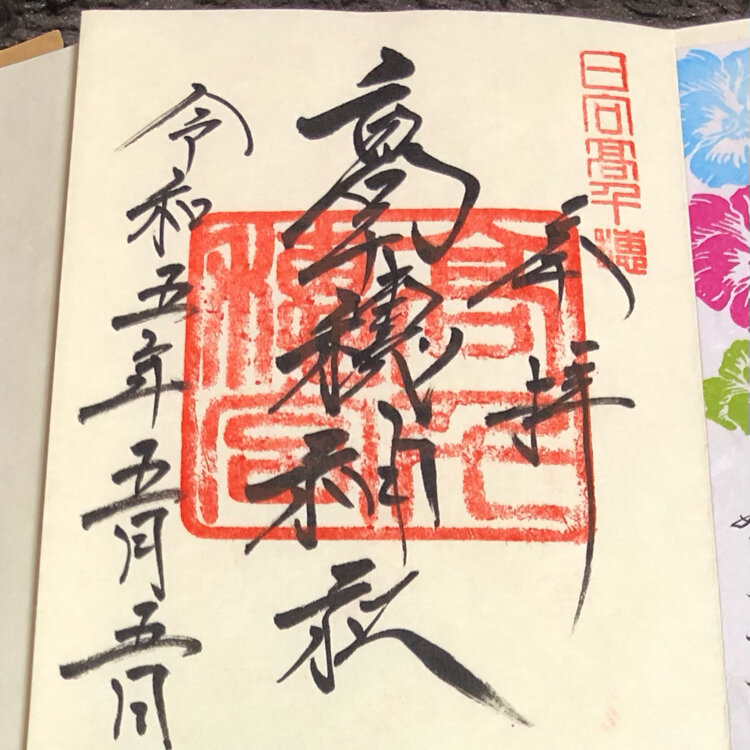 日向高千穂
奉拝
高千穂神社
令和五年五月五日